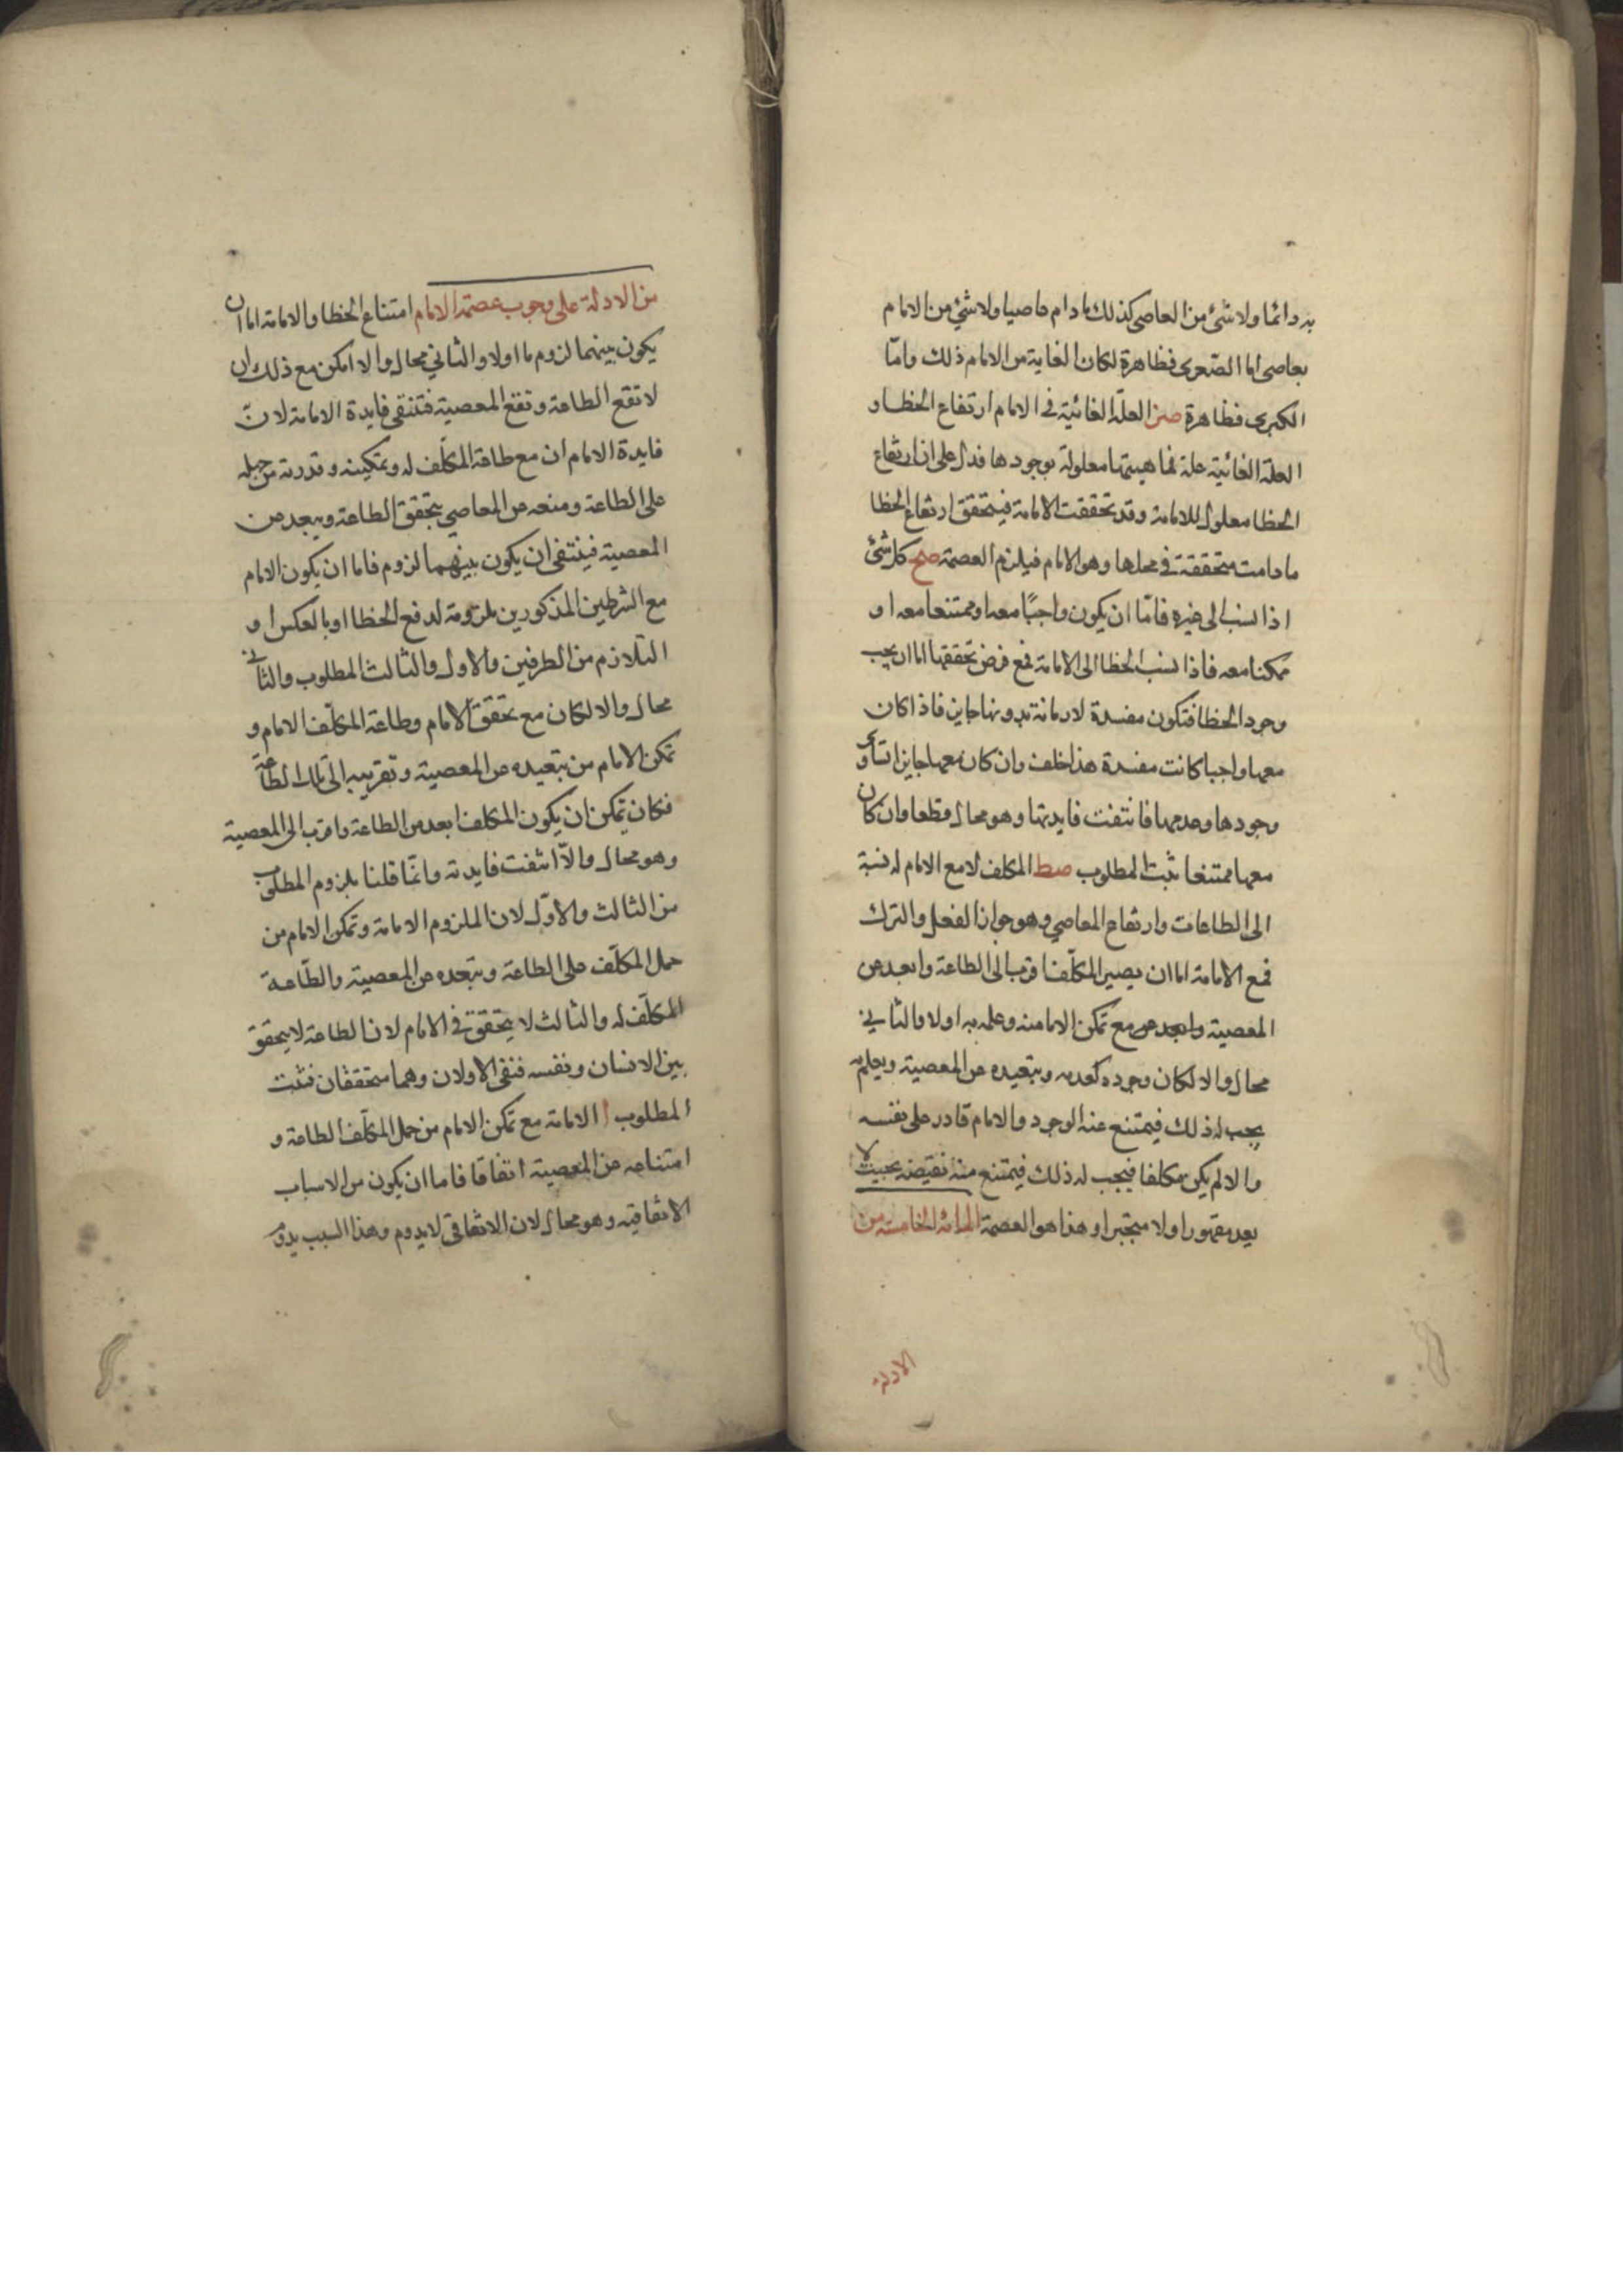 به دائما ولا شئ من العاصى كذلك مادام عاصيا ولا شئ من الامام
بعاصى اما الصغرى فظاهرة لكان الغاية من الامام ذلك وامّا
الكبرى فظاهرة صز العلّة الغائية فى الامام ارتفاع الخطا و
العلة الغائية علة بماهيتها معلولة بوجودها فدل على ان ارتفاع
الخطا معلول للامامة وقد تحققت الامامة فيتحقق ارتفاع الخطا
ما دامت متحققة في محلها وهو الامام فيلزم العصمة صح كل شئ
اذا نسب الى غيره فامّا ان يكون واجبًا معه او ممتنعا معه او
ممكنا معه فاذا نسب الخطا الى الامامة فمع فرض تحققها اما ان يجب
وجود الخطا فتكون مفسدة لا بدونها جاين فاذا كان
معها واجبا كانت مفسدة هذا خلف وان كان معها جايزا تساوى
وجودها وعدمها فانتفت فايدتها وهو محال قطعا وان كان
معها ممتنعا ثبت المطلوب صط المكلف لا مع الامام له نسبة
الى الطاعات وارتفاع المعاصي وهو جواز الفعل والترك
فمع الامامة اما ان يصير المكلّف اقرب الى الطاعة وابعد عن
المعصية مع تمكن الامام منه وعلمه به اولا والثاني
محال والا لكان وجوده كعدمه وبتعيده عن المعصية ويعلم به
يجب له ذلك فيمتنع عنه الوجود والامام قادر على نفسه
والا لم يكن مكلفا فيجب له ذلك فيمتنع منه نقيضه بحيث لا
يعد مقهورا ولا مجبرا وهذا هو العصمة المائة الخامسة من
الادلة
من الادلة على وجوب عصمة الامام امتناع الخطا والامامة اما ان
يكون بينهما لزوم ما اولا والثاني محال والا امكن مع ذلك ان
لا تقع الطاعة وتقع المعصية فتنتفى فايدة الامامة لانّ
فايدة الامام ان مع طاعة المكلّف له وتمكينه وقدرته من حمله
على الطاعة ومنعه من المعاصي يتحقق الطاعة ويبعد من
المعصية فينتفى ان يكون بينهما لزوم فاما ان يكون الامام
مع الشرطين المذكورين ملزومة لدفع الخطا او بالعكس او
التلازم من الطرفين والاول والثالث المطلوب والثاني
محال والا لكان مع تحقق الامام وطاعة المكلّف الامام و
تمكن الامام من تبعيده من المعصية وتقريبه الى تلك الطاعة
فكان يمكن ان يكون المكلف ابعد من الطاعة واقرب الى المعصية
وهو محال والّا انتفت فايدته وانّما قلنا بلزوم المطلوب
من الثالث والاوّل لان الملزوم الامامة وتمكن الامام من
حمل المكلّف على الطاعة وبتعده عن المعصية والطّاعة
المكلّف له والثالث لا يتحقق في الامام لان الطاعة لا يتحقق
بين الانسان ونفسه فبقى الاولان وهما متحققان فثبت
المطلوب ا الامامة مع تمكن الامام من حمل المكلّف الطاعة و
امتناعه عن المعصية اتفاقا فاما ان يكون من الاسباب
الاتفاقية وهو محال لان الاتفاقى لا يدوم وهذا السبب يدوم